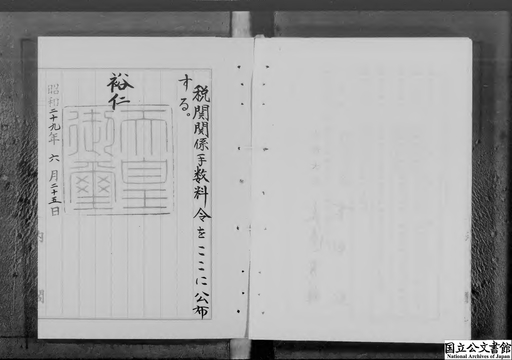 税関関係手数料令をここに公布
する。
裕仁
天皇
御璽
昭和二十九年六月二十五日
国立公文書館
National Archives of Japan